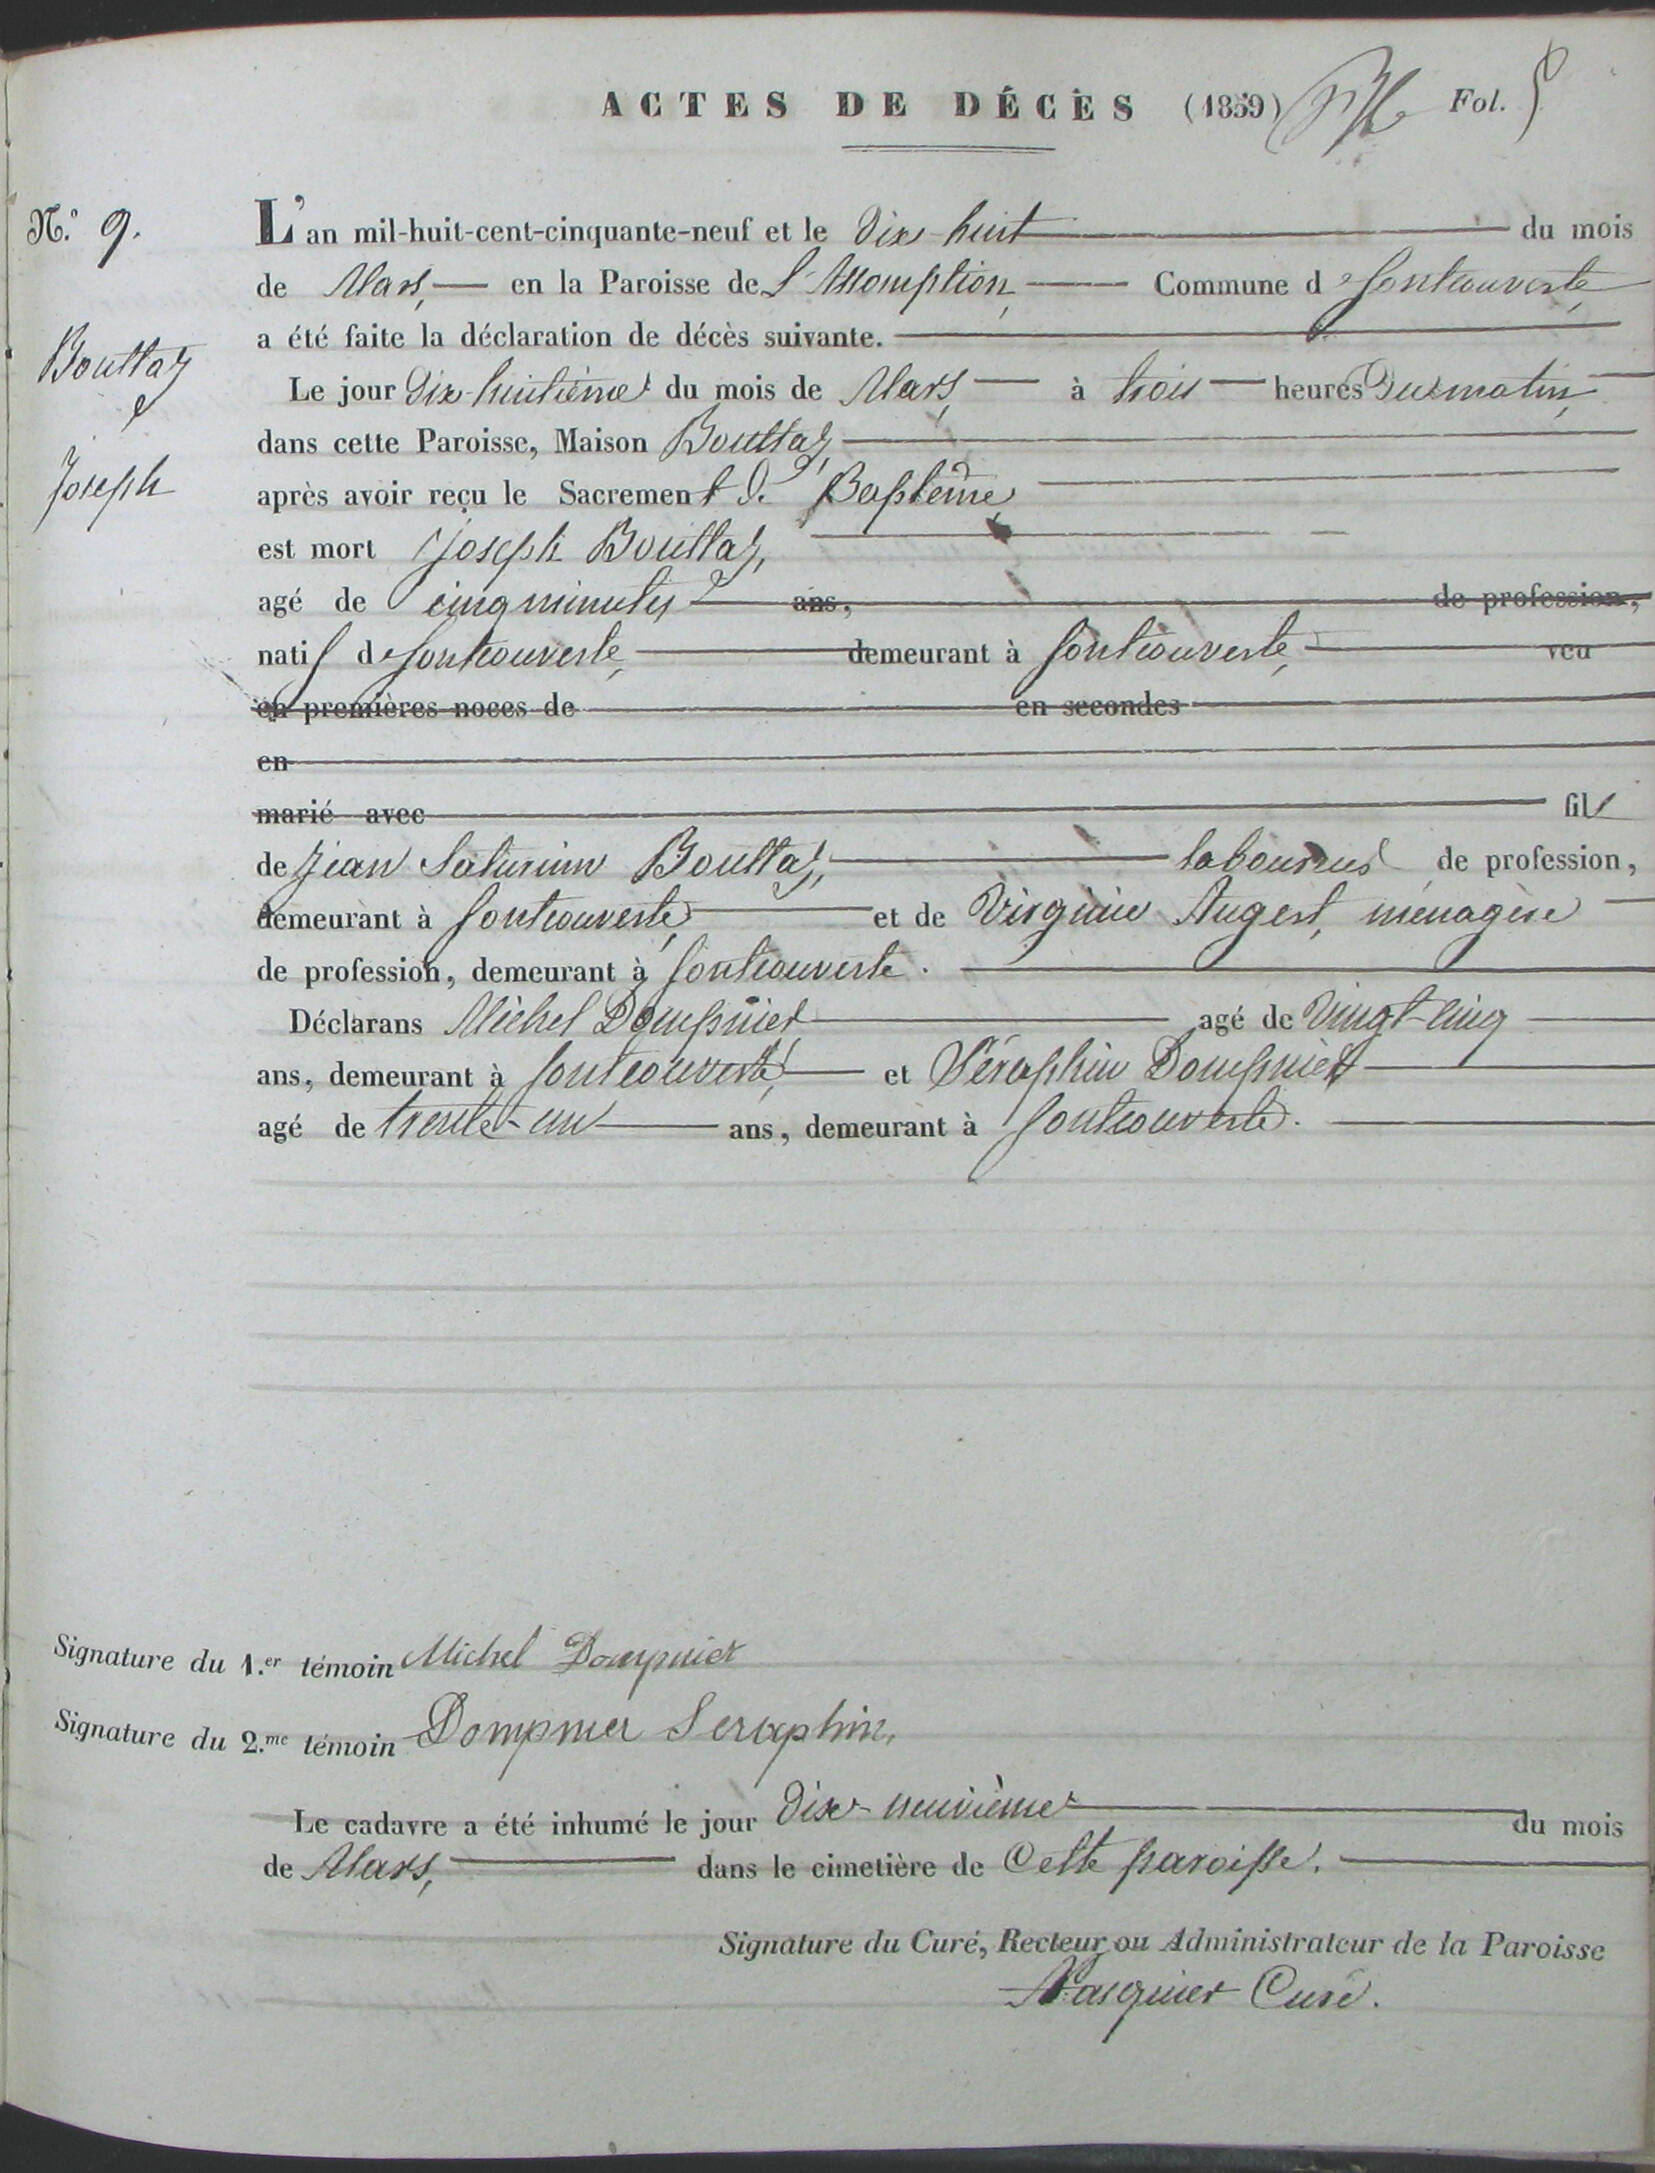 ACTES DE DÉCÈS (1859) Fol. 5
N.° 9.
L'an mil-huit-cent-cinquante-neuf et le dix-huit du mois
de Mars, en la Paroisse de L'Assomption, Commune de fontcouverte,
a été faite la déclaration de décès suivante.
Bouttaz
Joseph
Le jour dix-huitième du mois de Mars, à trois heures du matin,
dans cette Paroisse, Maison Bouttaz,
après avoir reçu le Sacrement de Baptême,
est mort Joseph Bouttaz,
agé de cinq minutes ans, de profession,
natif de fontcouverte, demeurant à fontcouverte, veu
en premières noces de en secondes
en
marié avec fils
de Jean Saturnin Bouttaz, laboureur de profession,
demeurant à fontcouverte, et de Virginie Augert, ménagère
de profession, demeurant à fontcouverte.
Déclarans Michel Dompnier agé de vingt-cinq
ans, demeurant à fontcouverte, et Séraphin Dompnier
agé de trente-un ans, demeurant à fontcouverte.
Signature du 1.er témoin Michel Dompnier
Signature du 2.me témoin Dompnier Seraphin,
Le cadavre a été inhumé le jour dix-neuvième du mois
de Mars, dans le cimetière de Cette paroisse.
Signature du Curé, Recteur ou Administrateur de la Paroisse
Pasquier Curé.